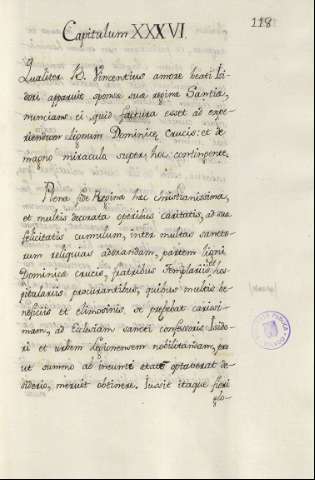 118
Capitulum XXXVI.
Qualiter B. Vincentius amore beati Isi
dori apparuit sponse sue regine Santia,
nuncians ei quid factura esset ad expe
riendum lignum Dominice Crucis: et de
magno miraculo super hoc contingente.
Plena fide Regina hec christianissima,
et multis decorata operibus caritatis, ad sue
felicitatis cumulum, inter multas sancto
rum reliquias adorandam, partem ligni
Dominice crucis, fratribus Templariis, hos
pitalariis procurantibus, quibus multis be
neficiis et elimosinis, se prebebat carissi
mam, ad Eclesiam sancti confessoris Isido
ri et urbem legionensem nobilitandam,
ut summo ab ineunte etate optaverat de
siderio, meruit obtinere. Iussit itaque fieri
glo-